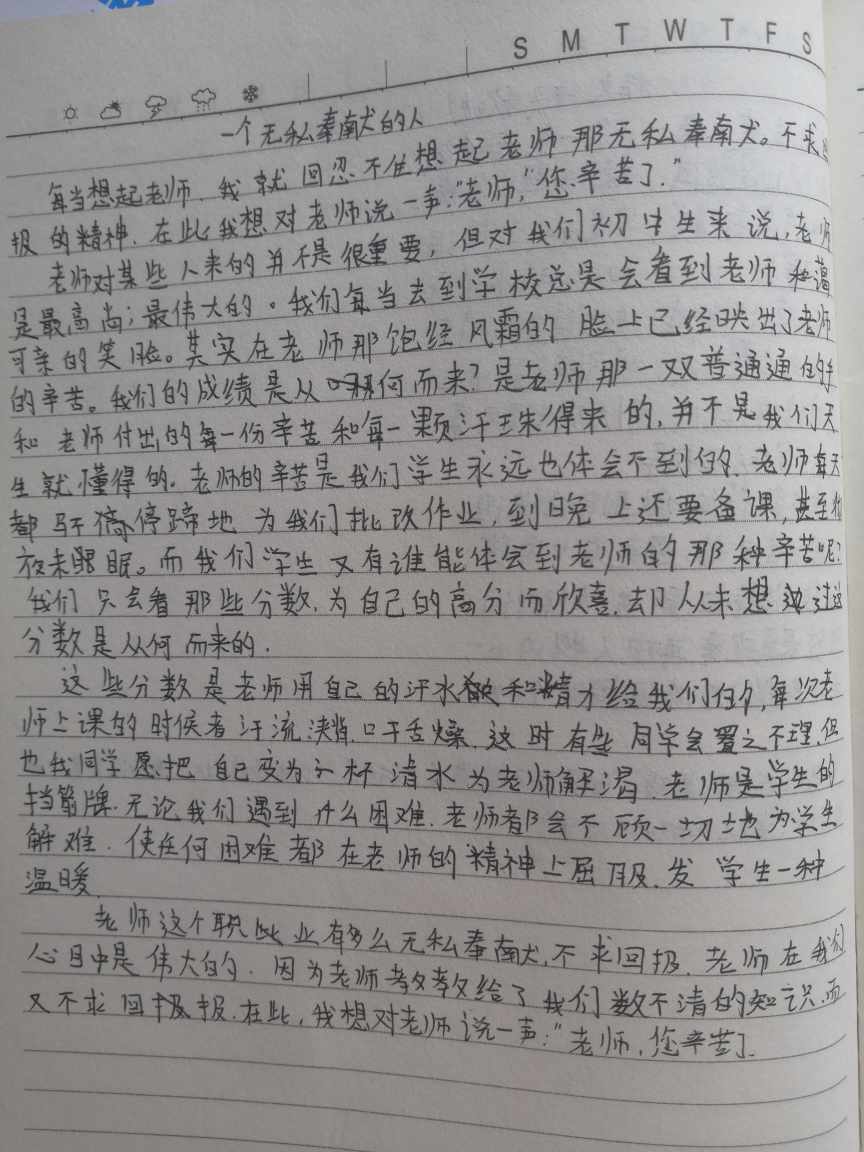 S M T W T F S
一个无私奉献的人
每当想起老师,我就回忍不住想起老师那无私奉献。不求
报的精神,在此我想对老师说一声:"老师,"您辛苦了."
老师对某些人来的并不是很重要,但对我们初中生来说,老师
是最高尚;最伟大的。我们每当去到学校总是会看到老师和蔼
可亲的笑脸。其实在老师那饱经风霜的脸上已经映出了老师
的辛苦。我们的成绩是从何而来?是老师那一双普通通的手
和老师付出的每一份辛苦和每一颗汗珠得来的,并不是我们天
生就懂得的。老师的辛苦是我们学生永远也体会不到的.老师每天
都不停蹄地为我们批改作业,到晚上还要备课,甚至
夜未眠。而我们学生又有谁能体会到老师的那种辛苦呢?
我们只会看那些分数,为自己的高分而欣喜.却从未想过这
分数是从何而来的.
这些分数是老师用自己的汗水和精才给我们的,每次老
师上课的时候者汗流浃背.口干舌燥.这时有些同学会置之不理.但
也我同学愿把自己变为一杯清水为老师解渴.老师是学生的
挡箭牌.无论我们遇到什么困难.老师都会不顾一切地为学生
解难.使任何困难都在老师的精神上屈服.发学生一种
温暖.
老师这个职业有多么无私奉献,不求回报.老师在我们
心目中是伟大的.因为老师教给了我们数不清的知识.而
又不求回报.在此,我想对老师说一声:"老师,您辛苦了.